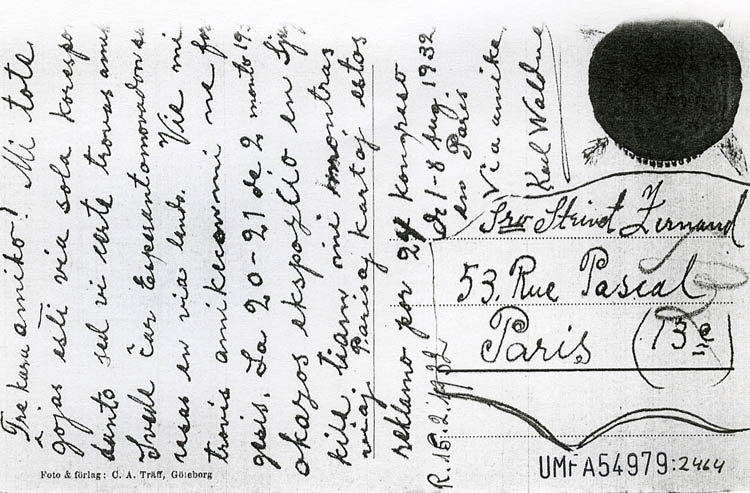 Tre kara amiko! Mi tote
ĝojas esti via sola korespon
danto sed vi certe trovas ami
Svede ĉar Esperantomovadon
resas en via lando. Vie mi
trovis amikecon mi ne for
gesis. La 20-21 de 2 monto 193
okazos ekspozicio en
kile tiam mi montras
viaj Parisaj kartaj estos
reklamo per 24 kongreso
de 1-8 aug. 1932
en Paris
Via amika
Karl Waldne
R. 15.2.1932
Sro Strivot Fernand
53. Rue Pascal
Paris (13e)
Foto & förlag: C. A. Träff, Göteborg
UMFA54979:2464